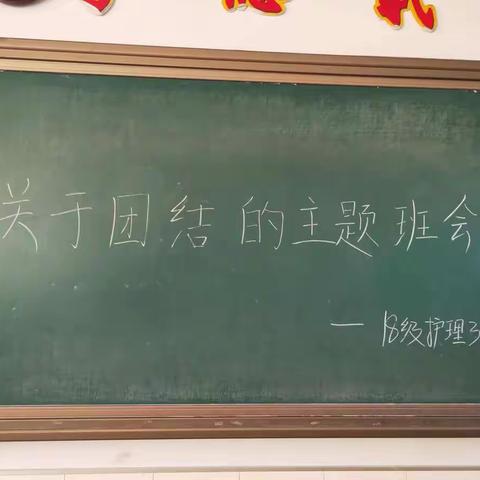 关于团结的主题班会
— 18级护理3